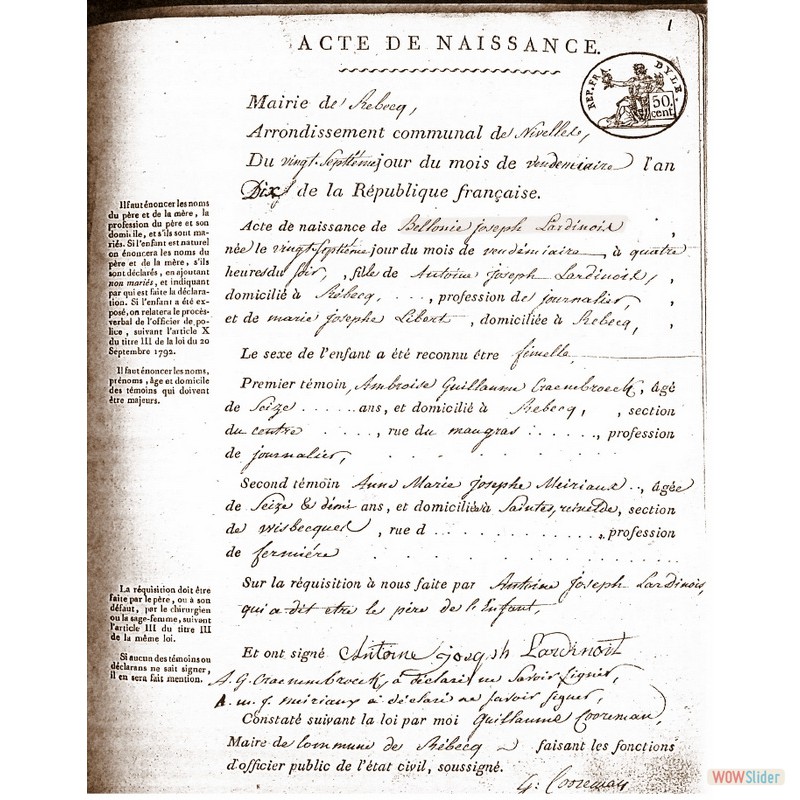 1
ACTE DE NAISSANCE.
REP. FRA. DYLE.
50 cent
Mairie de Rebecq,
Arrondissement communal de Nivelles,
Du vingt Septième jour du mois de vendemiaire l'an
Dix de la République française.
Acte de naissance de Bellonie joseph Lardinois
née le vingt Septième jour du mois de vendémiaire, à quatre
heures du soir, fille de Antoine joseph Lardinois,
domicilié à Rébecq, ...., profession de journalier,
et de marie josephe Libert, domiciliée à Rebecq,
Le sexe de l'enfant a été reconnu être fémelle,
Premier témoin, Ambroise Guillaume Craembroeck, âgé
de Seize ...... ans, et domicilié à Rebecq, , section
du centre ....., rue du maugras ......, profession
de journalier,
Second témoin Anne Marie josephe Meiriaux .., âgée
de Seize & demi ans, et domiciliée à Saintes, , section
de wisbecquel , rue d ..... , profession
de fermiére
Sur la réquisition à nous faite par Antoine Joseph Lardinois,
qui a dit etre le père de l'Enfant,
Et ont signé Antoine joseph Lardinoit
A. G. Craenembroeck, a déclaré ne savoir signer,
A. m. j. meiriaux a déclaré ne savoir signer,
Constaté suivant la loi par moi Guillaume Cooreman,
Maire de Commune de Rébecq faisant les fonctions
d'officier public de l'état civil, soussigné.
G: Cooreman
Il faut énoncer les noms
du père et de la mère, la
profession du père et son
domicile, et s'ils sont ma-
riés. Si l'enfant est naturel
on énoncera les noms du
père et de la mère, s'ils
sont déclarés, en ajoutant
non mariés, et indiquant
par qui est faite la déclara-
tion. Si l'enfant a été ex-
posé, on relatera le procès-
verbal de l'officier de po-
lice, suivant l'article X
du titre III de la loi du 20
Septembre 1792.
Il faut énoncer les noms,
prénoms, âge et domicile
des témoins qui doivent
être majeurs.
La réquisition doit être
faite par le père, ou à son
défaut, par le chirurgien
ou la sage-femme, suivant
l'article III du titre III
de la même loi.
Si aucun des témoins ou
déclarans ne sait signer,
il en sera fait mention.
WOWSlider